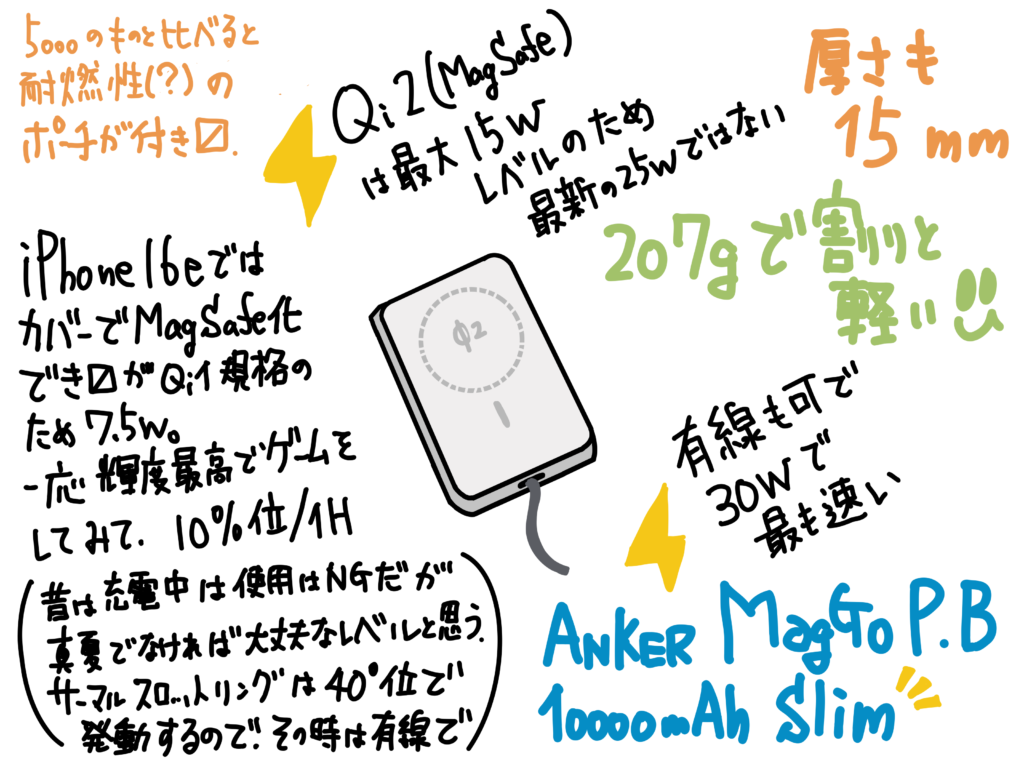 5000のものと比べると
耐燃性(?)の
ポーチが付き〼.
Qi2(MagSafe)
は最大15W
レベルのため
最新の25Wではない
厚さも
15mm
207gで割りと
軽い
iPhone16eでは
カバーでMagSafe化
でき〼がQi1規格の
ため7.5W。
一応輝度最高でゲームを
してみて、10%位/1H
Qi2
有線も可で
30Wで
最も速い
(昔は充電中は使用はNGだが
真夏でなければ大丈夫なレベルと思う.
サーマルスロットリングは40°位で
発動するので、その時は有線で)
ANKER MagGo P.B
10000mAh Slim